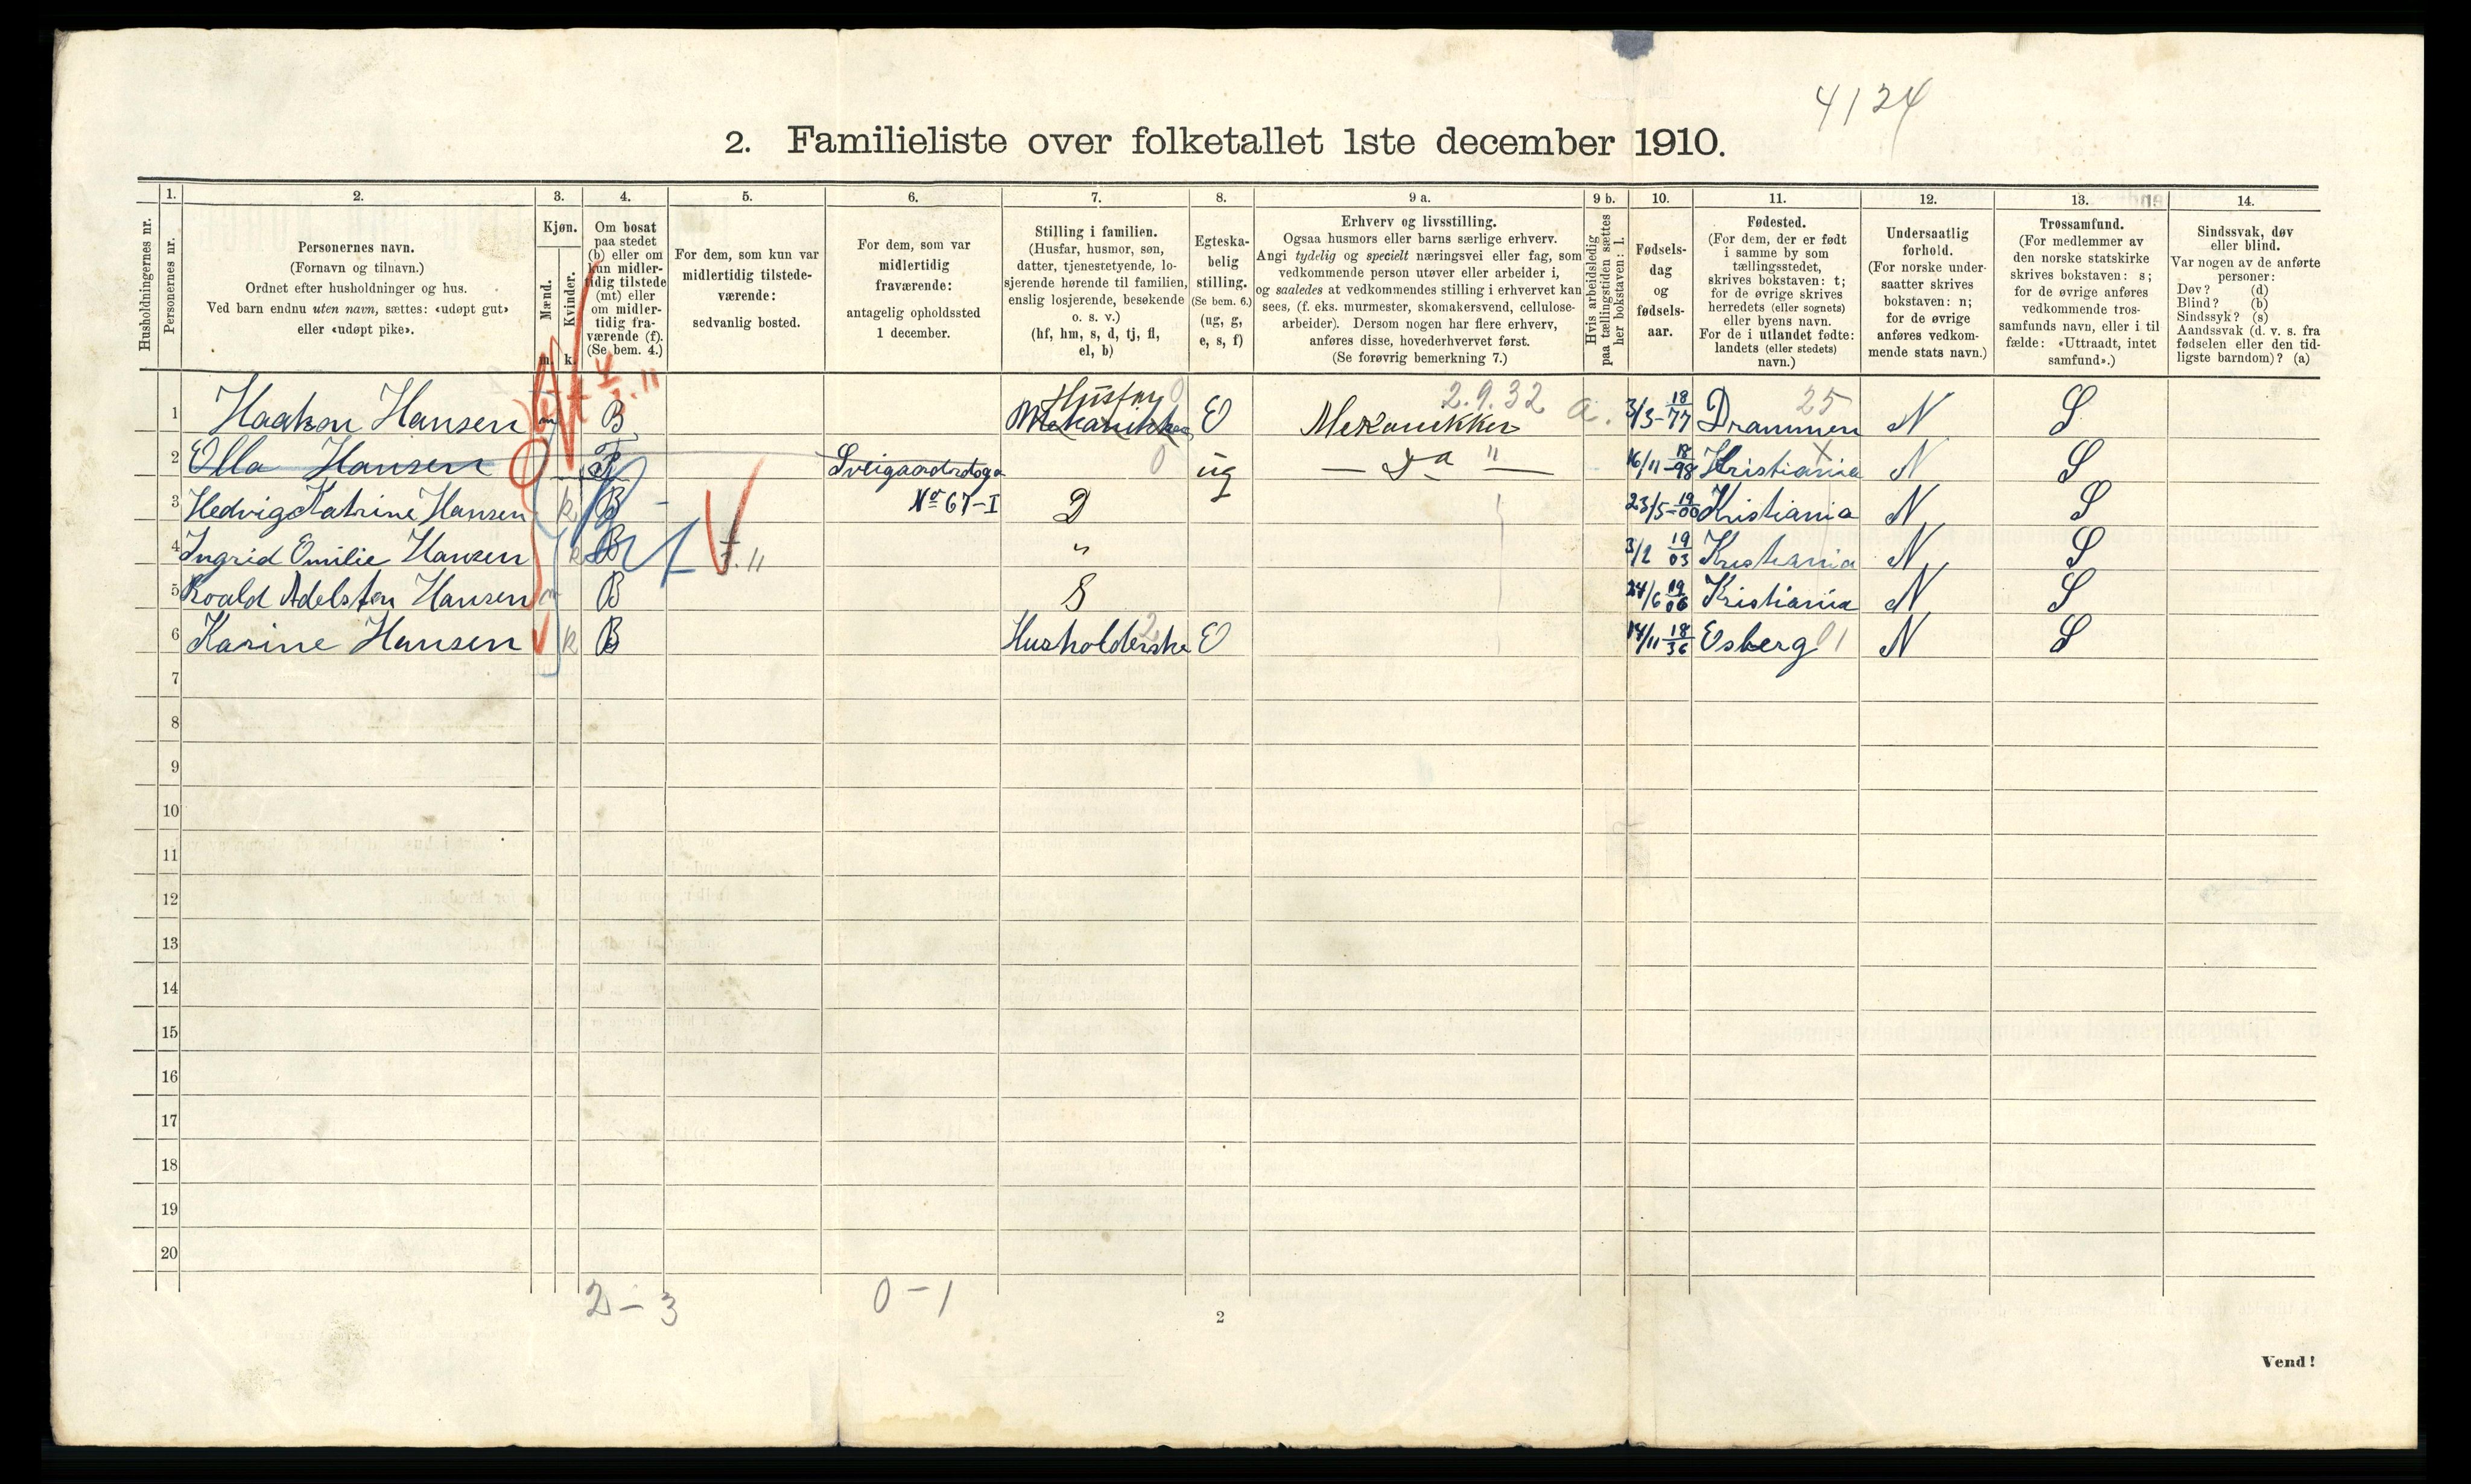 4124
2. Familieliste over folketallet 1ste december 1910.
Husholdningernes nr.
1.
Personernes nr.
2.
Personernes navn.
(Fornavn og tilnavn.)
Ordnet efter husholdninger og hus.
Ved barn endnu uten navn, sættes: «udøpt gut»
eller «udøpt pike».
3.
Kjøn.
Mænd.
Kvinder.
m. k.
4.
Om bosat
paa stedet
(b) eller om
kun midler-
tidig tilstede
(mt) eller
om midler-
tidig fra-
værende (f).
(Se bem. 4.)
5.
For dem, som kun var
midlertidig tilstede-
værende:
sedvanlig bosted.
6.
For dem, som var
midlertidig
fraværende:
antagelig opholdssted
1 december.
7.
Stilling i familien.
(Husfar, husmor, søn,
datter, tjenestetyende, lo-
sjerende hørende til familien,
enslig losjerende, besøkende
o. s. v.)
(hf, hm, s, d, tj, fl,
el, b)
8.
Egteska-
belig
stilling.
(Se bem. 6.)
(ug, g,
e, s, f)
9 a.
Erhverv og livsstilling.
Ogsaa husmors eller barns særlige erhverv.
Angi tydelig og specielt næringsvei eller fag, som
vedkommende person utøver eller arbeider i,
og saaledes at vedkommendes stilling i erhvervet kan
sees, (f. eks. murmester, skomakersvend, cellulose-
arbeider). Dersom nogen har flere erhverv,
anføres disse, hovederhvervet først.
(Se forøvrig bemerkning 7.)
9 b.
Hvis arbeidsledig
paa tællingstiden sættes
her bokstaven: l.
10.
Fødsels-
dag
og
fødsels-
aar.
11.
Fødested.
(For dem, der er født
i samme by som
tællingsstedet,
skrives bokstaven: t;
for de øvrige skrives
herredets (eller sognets)
eller byens navn.
For de i utlandet fødte:
landets (eller stedets)
navn.)
12.
Undersaatlig
forhold.
(For norske under-
saatter skrives
bokstaven: n;
for de øvrige
anføres vedkom-
mende stats navn.)
13.
Trossamfund.
(For medlemmer av
den norske statskirke
skrives bokstaven: s;
for de øvrige anføres
vedkommende tros-
samfunds navn, eller i til
fælde: «Uttraadt, intet
samfund».)
14.
Sindssvak, døv
eller blind.
Var nogen av de anførte
personer:
Døv? (d)
Blind? (b)
Sindssyk? (s)
Aandssvak (d. v. s. fra
fødselen eller den tid-
ligste barndom)? (a)
1 Haakon Hansen m B Husfar 0 Mekanikker E Mekanikker 2.9.32 a. 3/3-18/77 Drammen 25 N S
2 Olla Hansen F 0 ug — Da " — 16/11-18/98 Kristiania N S
3 Hedvig Katrine Hansen k B No 67-I D 23/5-19/00 Kristiania N S
4 Ingrid Emilie Hansen k B " 3/2 19/03 Kristiania N S
5 Roald Adelsten Hansen m B S 24/6 19/06 Kristiania N S
6 Karine Hansen k B Husholderske 2 E 14/11 18/36 Esberg 01 N S
7
8
9
10
11
12
13
14
15
16
17
18
19
20
2-3 0-1
2
Vend!